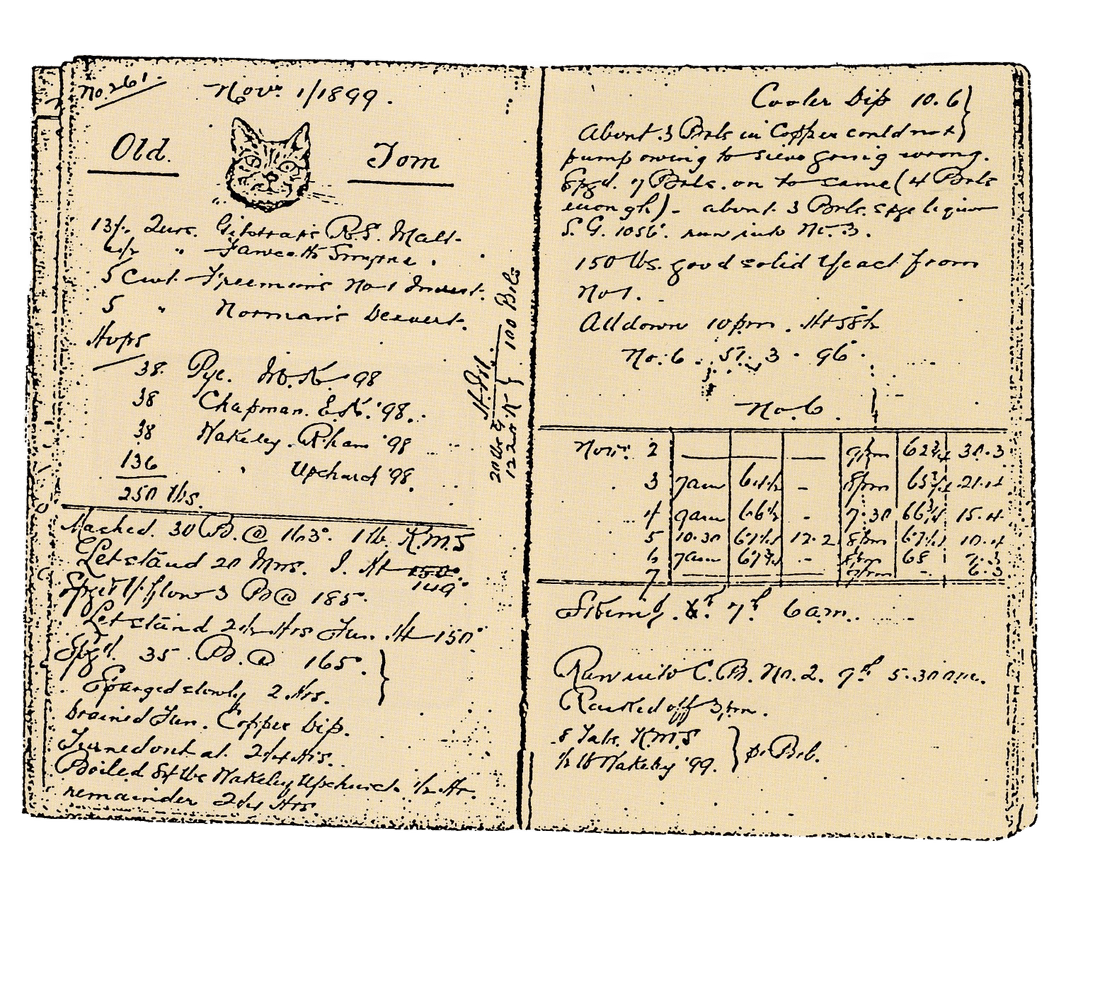 No. 261.
Novr. 1/1899.
Old. Tom
13½ Qurs. Gilstrap's P.S. Malt.
" Fawcett's Smyrna.
5 Cwt. Freeman's No 1 Invert.
5 " Norman's Dexvert.
Hops
38. Pye. M.K. 98
38 Chapman. E.K. '98.
38 Wakeley. Rham '98
136 " Upchurd '98.
250 lbs.
100 Bls
Mashed. 30 @ 163° 1 lb K.M.S
Let stand 20 Mns. Ht 150°.
149°
3 @ 185°
Let stand 2¼ Hrs Tun. Ht 150°
Spgd. 35 @ 165°. }
Sparged slowly 2 Hrs.
Drained Tun. Copper Dip.
Turned out at 2¼ Hrs.
Boiled lbs Wakeley Upchurd. ½ Hr.
remainder 2¼ Hrs
Cooler Dip 10.6 }
About 3 Brls in Copper could not }
pump owing to sieve going wrong.
Spgd. 7 Brls. on to same (4 Brls
enough). about 3 Brls. spge liquor
S.G. 1056°. run into No. 3.
150 lbs. good solid Yeast from
No 1.
All down 10 pm. Ht 58½
No. 6. 57. 3 . 96
No. 6.
Novr. 2 — — — 9pm 62¾ 30.3
3 7am 64½ - 8pm 65¾ 21.4
4 9am 66½ - 7.30 66¾ 15.4
5 10.30 67½ 12.2 8pm 67½ 10.4
6 7am 67¾ - 8pm 68 7.3
7 — — — - 6.3
7th 6 am.
Ran into C.B. No. 2. 9th 5.30 a.m.
Racked off 3 pm.
8 Tabs. K.M.S }
½ lb Wakeley '99. } pr Brl.